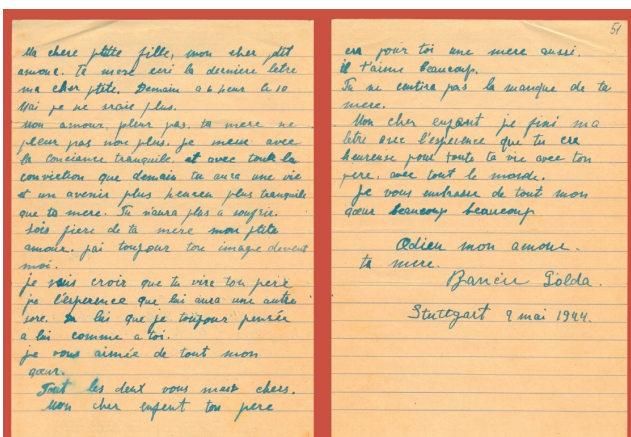 Ma chere ptite fille, mon cher ptit
amour. Ta mere ecri la derniere letre
ma cher ptite. Demain a 6 heur le 10
Mai je ne srais plus.
Mon amour, pleur pas, ta mere ne
pleur pas non plus. Je meur avec
la conciance tranquile et avec toute la
conviction que demain tu aura une vie
et un avenir plus plus tranquile
que ta mere. Tu n'aura plus a soufrir.
Sois fiere de ta mere mon ptite
amour. j'ai toujour ton image devent
moi.
je vais croir que tu vera ton pere
je l'esperence que lui aura une autre
sore. lui que je toujour pensée
a lui comme a toi.
je vous aimée de tout mon
cœur.
Tout les deux vous chers.
Mon cher enfent ton pere
51
era pour toi une mere aussi.
il t'aime beaucoup.
Tu ne sentira pas la manque de ta
mere.
Mon cher enfant je fini ma
letre avec l'esperence que tu era
heureuse pour toute ta vie avec ton
pere. avec tout le monde.
Je vous embrase de tout mon
cœur beaucoup beaucoup
Adieu mon amour.
ta mere.
Bancic Golda.
Stuttgart 9 mai 1944.